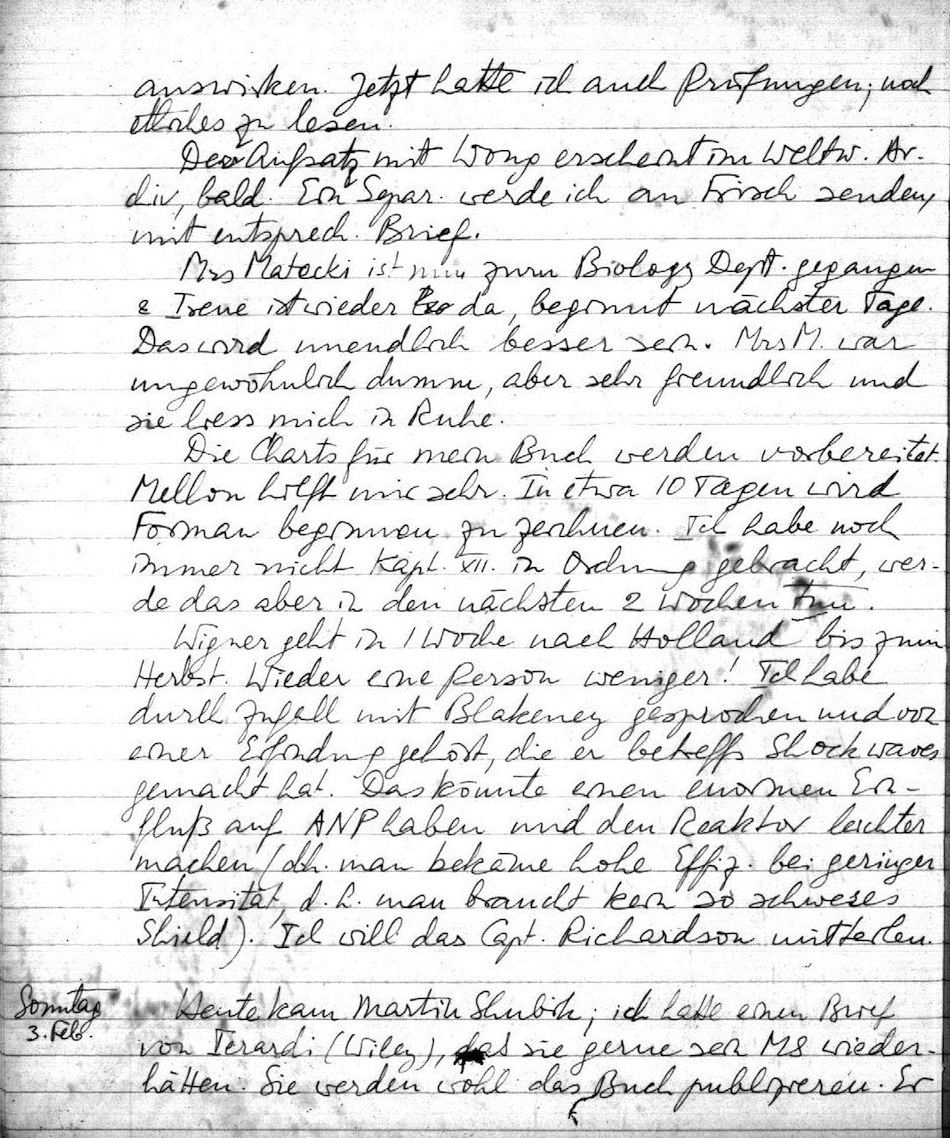 auswirken. Jetzt hatte ich auch Prüfungen; noch
etliches zu lesen.
Der Aufsatz mit Wong erscheint im Weltw. Ar-
chiv, bald. Ein Separ. werde ich an Frisch senden,
mit entsprech. Brief.
Mrs Matecki ist nun zum Biology Dept. gegangen
& Irene ist wieder da, beginnt nächster Tage.
Das wird unendlich besser sein. Mrs M. war
ungewöhnlich dumm, aber sehr freundlich und
sie liess mich in Ruhe.
Die Charts für mein Buch werden vorbereitet.
Mellon hilft mir sehr. In etwa 10 Tagen wird
Forman beginnen zu zeichnen. Ich habe noch
immer nicht Kapt. XII. in Ordnung gebracht, wer-
de das aber in den nächsten 2 Wochen tun.
Wigner geht in 1 Woche nach Holland bis zum
Herbst. Wieder eine Person weniger! Ich habe
durch Zufall mit Blakeney gesprochen und von
einer Erfindung gehört, die er betreffs Shock waves
gemacht hat. Das könnte einen enormen Ein-
fluß auf ANP haben und den Reaktor leichter
machen (dh. man bekäme hohe Effiz. bei geringer
Intensität, d.h. man braucht kein so schweres
Shield). Ich will das Capt. Richardson mitteilen.
Sonntag
3. Feb.
Heute kam Martin Shubik; ich hatte einen Brief
von Ierardi (Wiley), das sie gerne sein MS wieder-
hätten. Sie werden wohl das Buch publizieren. Er